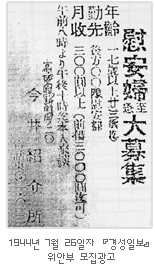 慰安婦至急大募集
年齡 一七歳以上廿三歳迄
勤先 後方〇〇隊慰安部
月收 三〇〇圓以上(前借三〇〇〇圓迄可)
午前八時より午後十時迄本人來談
今井紹介所
1944년 7월 26일자 『경성일보』
위안부 모집광고